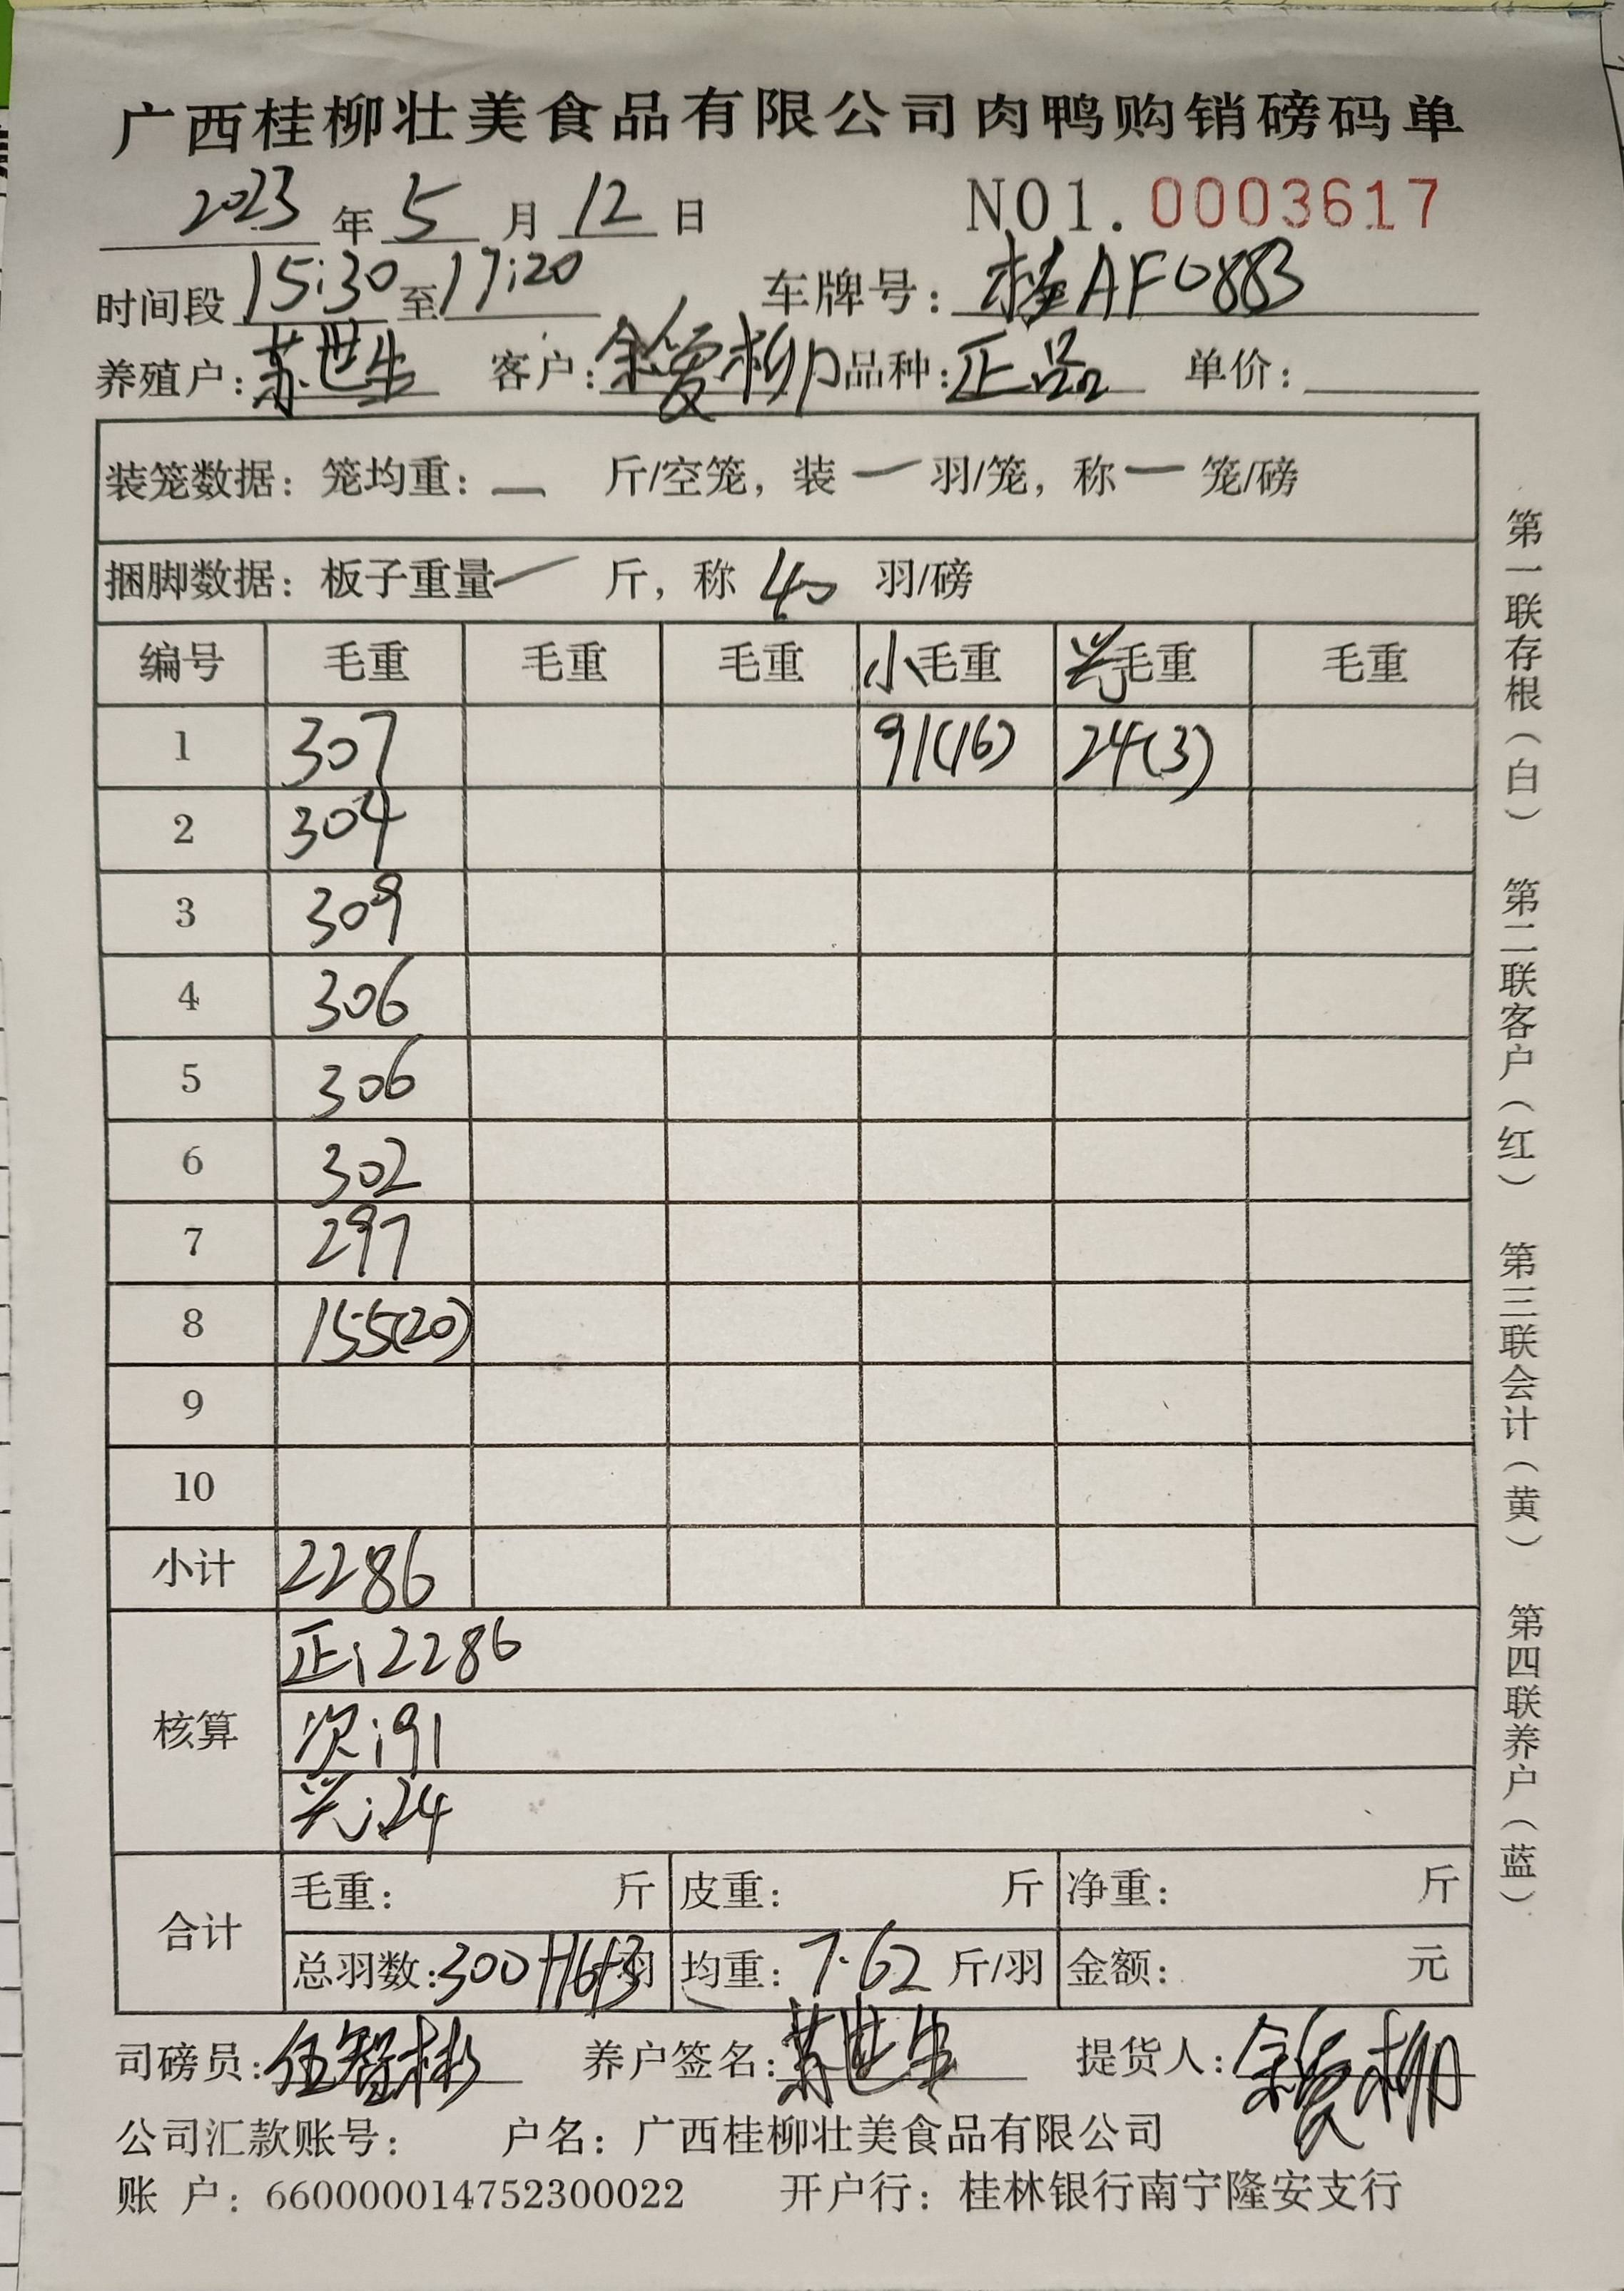 广西桂柳壮美食品有限公司肉鸭购销磅码单
2023 年 5 月 12 日 NO1. 0003617
时间段 15:30 至 17:20 车牌号: 桂AF0883
养殖户: 苏世生 客户: 余爱柳 品种: 正品 单价:
装笼数据: 笼均重: — 斤/空笼, 装 — 羽/笼, 称 — 笼/磅
捆脚数据: 板子重量 — 斤, 称 40 羽/磅
编号 毛重 毛重 毛重 小毛重 毛重 毛重
1 307 91(16) 24(3)
2 304
3 309
4 306
5 306
6 302
7 297
8 155(20)
9
10
小计 2286
核算 正:2286
次:91
:24
合计 毛重: 斤 皮重: 斤 净重: 斤
总羽数:300+16+3羽 均重: 7.62 斤/羽 金额: 元
司磅员:伍智彬 养户签名:苏世生 提货人:余爱柳
公司汇款账号: 户名: 广西桂柳壮美食品有限公司
账 户: 660000014752300022 开户行: 桂林银行南宁隆安支行
第一联存根(白) 第二联客户(红) 第三联会计(黄) 第四联养户(蓝)